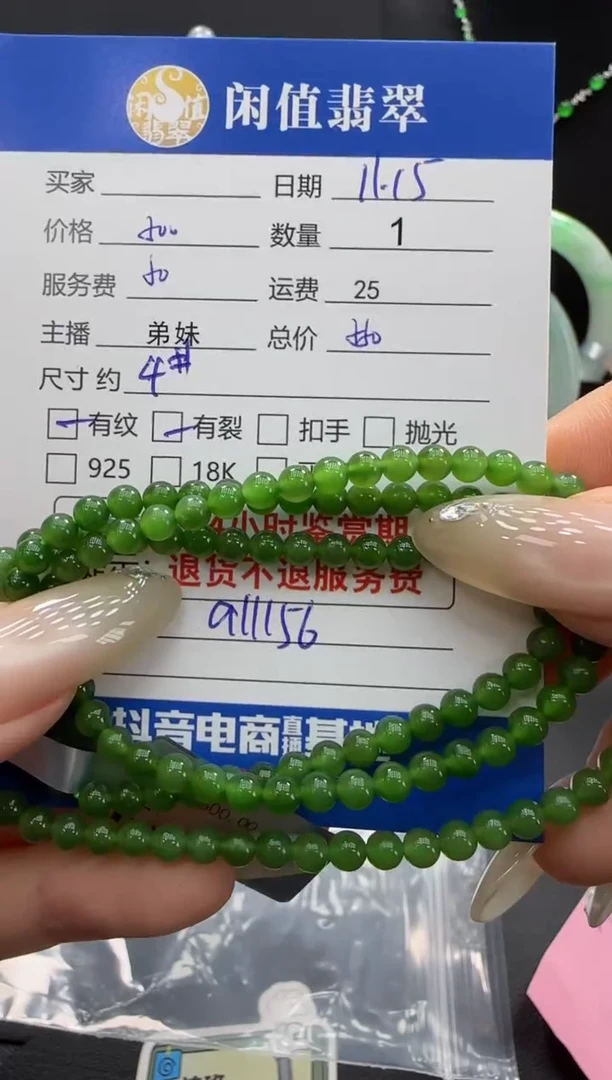 闲值翡翠
闲值翡翠
买家 日期 11.15
价格 数量 1
服务费 运费 25
主播 弟妹 总价
尺寸 约 4#
有纹 有裂 扣手 抛光
925 18K
4小时鉴赏期
退货不退服务费
a11156
抖音电商直播基地